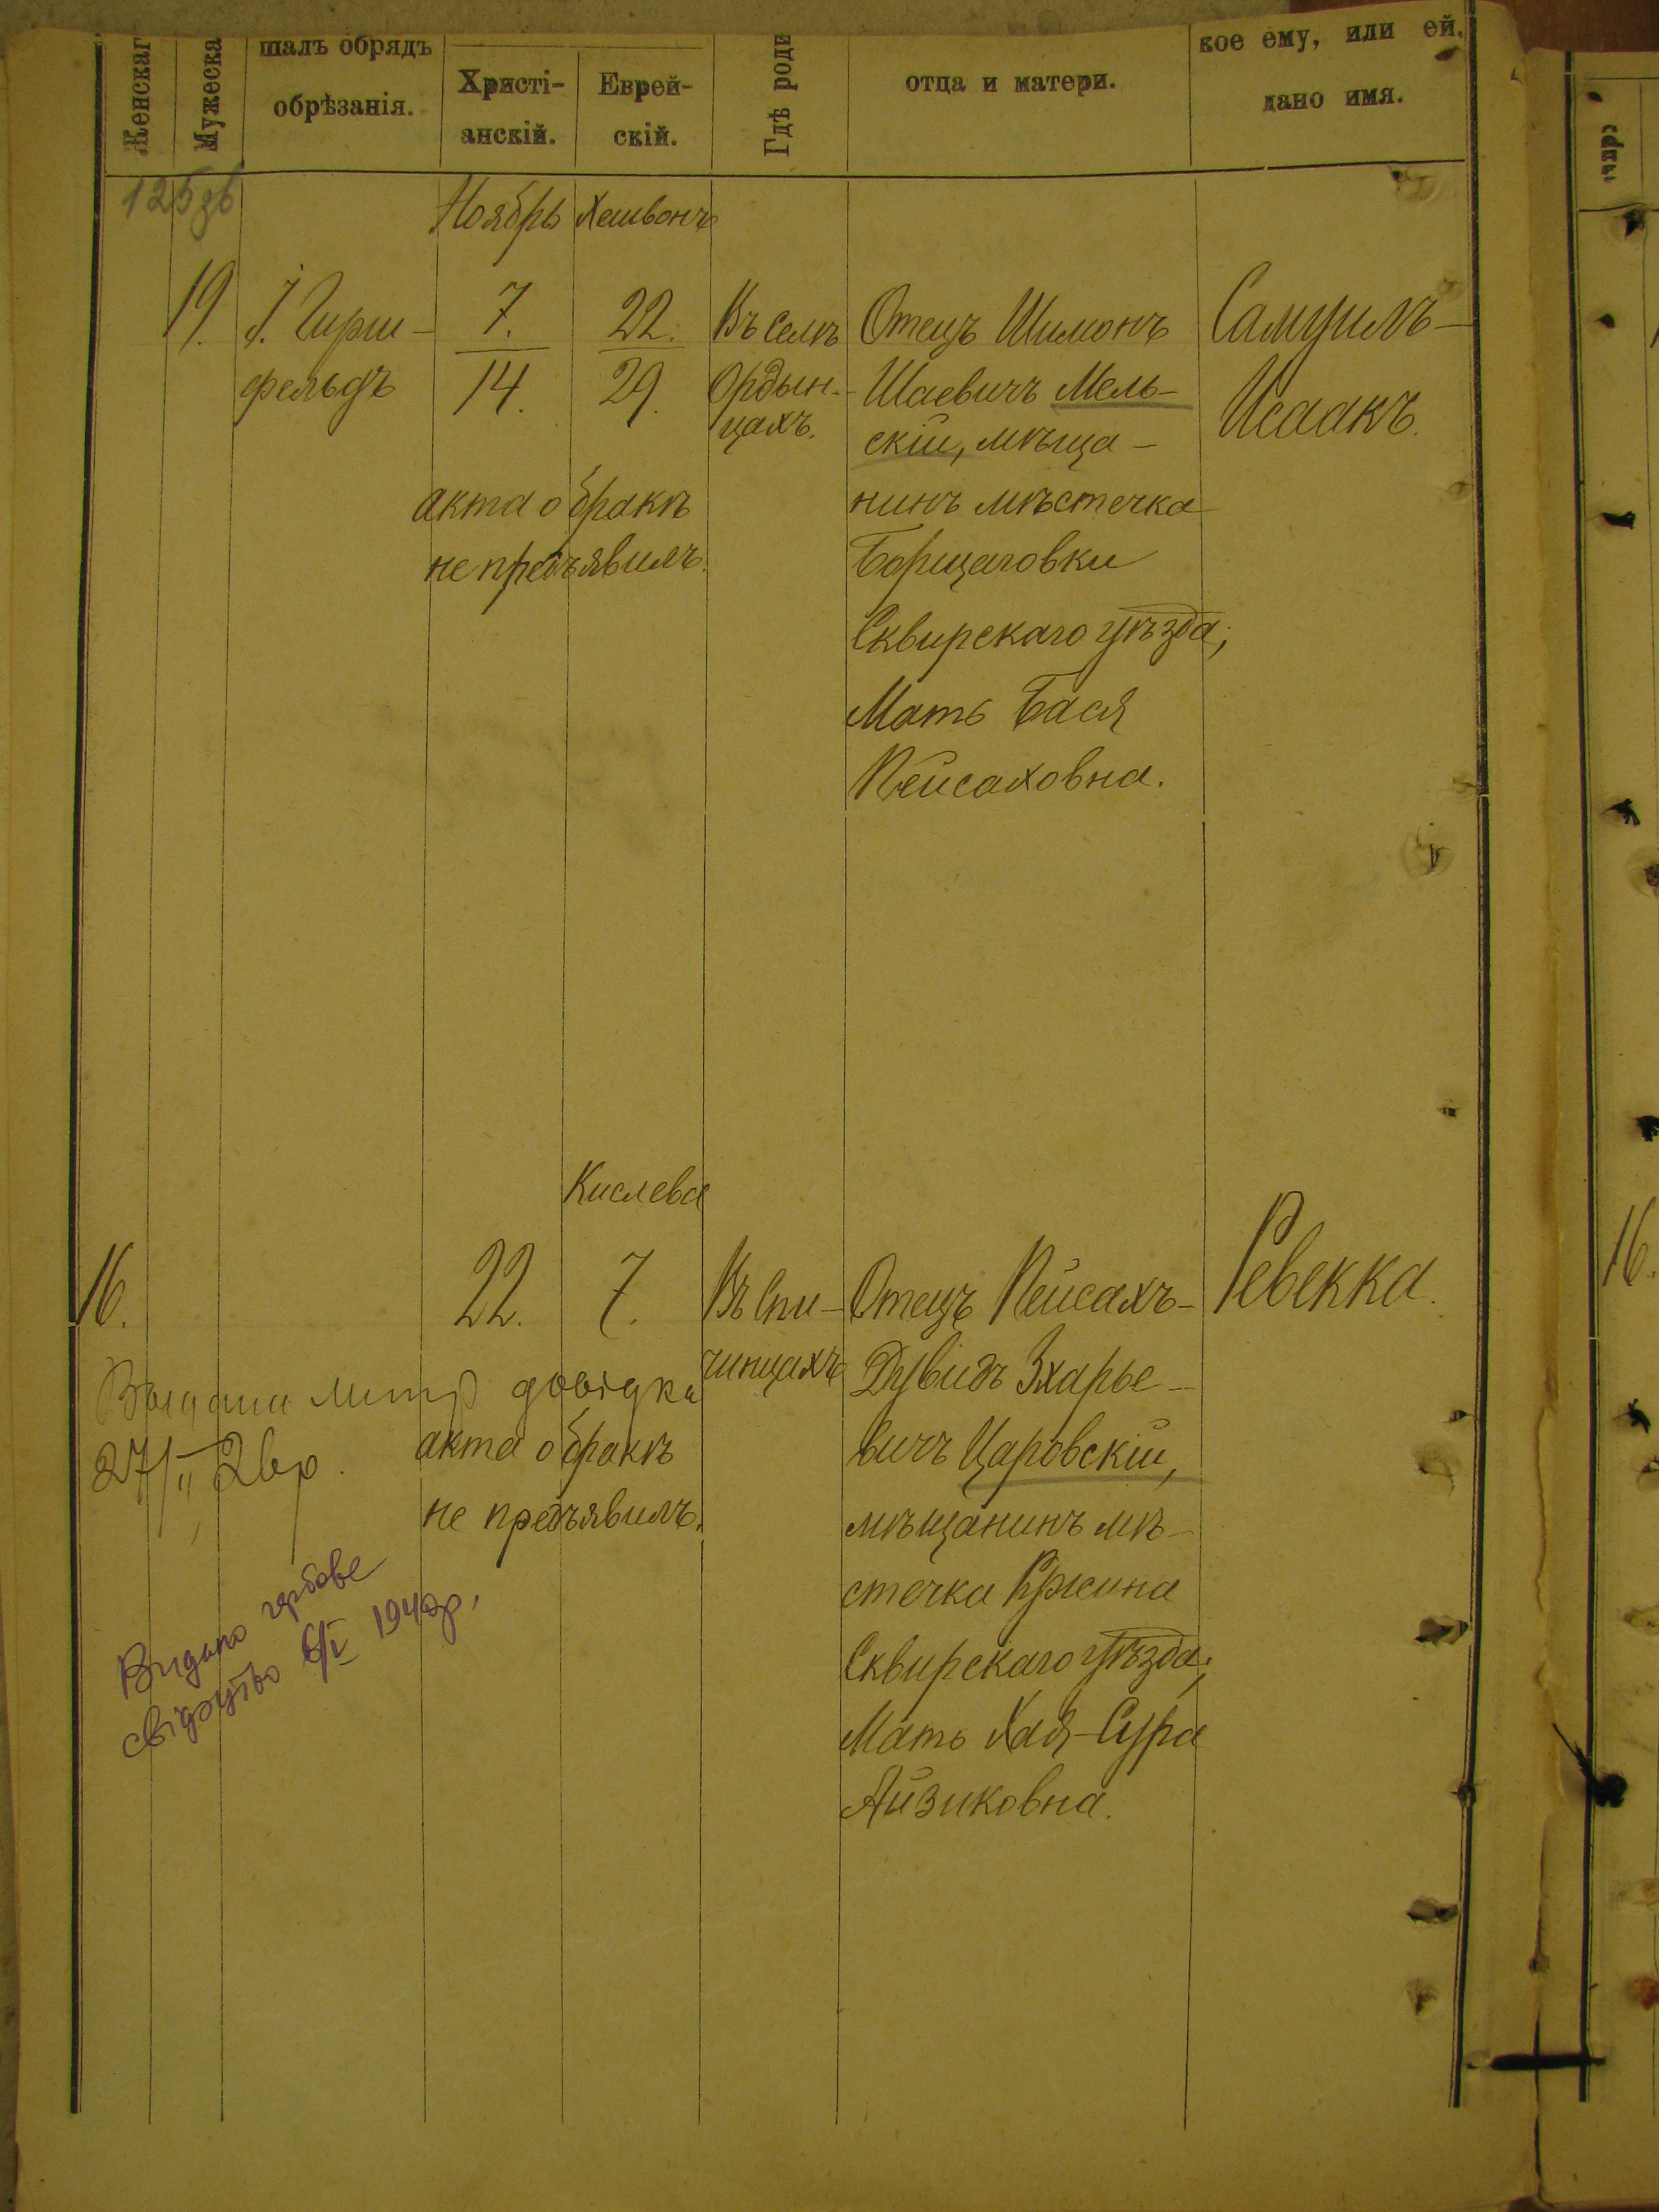 Женскаг
Мужеска
шалъ обрядъ
обрѣзанія.
Христі-
анскій.
Еврей-
скій.
Гдѣ роди
отца и матери.
кое ему, или ей.
дано имя.
125зв
Ноябрь Хешвонъ
19. І. Гирш-
фельдъ
7.
14.
22.
29.
Въ селѣ
Ордын-
цахъ.
Отецъ Шимонъ
Шаевичъ Мель-
скій, мѣща-
нинъ мѣстечка
Борщаговки
Сквирскаго уѣзда;
Мать Бася
Пейсаховна.
Самуилъ-
Исаакъ.
акта о бракѣ
не предъявилъ.
Кислева
16.
22. 7.
Въ Спи-
чинцахъ
Отецъ Пейсахъ-
Дувидъ Зхарье-
вичъ Царовскій,
мѣщанинъ мѣ-
стечка Ружина
Сквирскаго уѣзда;
Мать Хая-Сура
Айзиковна.
Ревекка.
довідка
27/II
акта о бракѣ
не предъявилъ.
Видано гербове
свідоцтво 6/V
16.